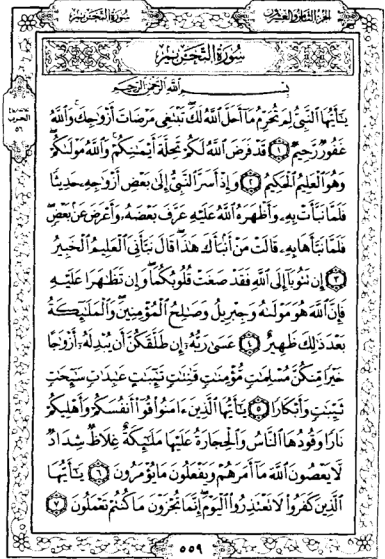 الجزء الثامن والعشرون
سورة التحريم
سورة التحريم
بسم الله الرحمن الرحيم
يَٰٓأَيُّهَا ٱلنَّبِيُّ لِمَ تُحَرِّمُ مَآ أَحَلَّ ٱللَّهُ لَكَ تَبْتَغِي مَرْضَاتَ أَزْوَٰجِكَ وَٱللَّهُ
غَفُورٌ رَّحِيمٌ ١ قَدْ فَرَضَ ٱللَّهُ لَكُمْ تَحِلَّةَ أَيْمَٰنِكُمْ وَٱللَّهُ مَوْلَىٰكُمْ
وَهُوَ ٱلْعَلِيمُ ٱلْحَكِيمُ ٢ وَإِذْ أَسَرَّ ٱلنَّبِيُّ إِلَىٰ بَعْضِ أَزْوَٰجِهِ حَدِيثًا
فَلَمَّا نَبَّأَتْ بِهِ وَأَظْهَرَهُ ٱللَّهُ عَلَيْهِ عَرَّفَ بَعْضَهُ وَأَعْرَضَ عَنْ بَعْضٍ
فَلَمَّا نَبَّأَهَا بِهِ قَالَتْ مَنْ أَنْبَأَكَ هَٰذَا قَالَ نَبَّأَنِيَ ٱلْعَلِيمُ ٱلْخَبِيرُ
٣ إِن تَتُوبَآ إِلَى ٱللَّهِ فَقَدْ صَغَتْ قُلُوبُكُمَا وَإِن تَظَٰهَرَا عَلَيْهِ
فَإِنَّ ٱللَّهَ هُوَ مَوْلَىٰهُ وَجِبْرِيلُ وَصَٰلِحُ ٱلْمُؤْمِنِينَ وَٱلْمَلَٰٓئِكَةُ
بَعْدَ ذَٰلِكَ ظَهِيرٌ ٤ عَسَىٰ رَبُّهُ إِن طَلَّقَكُنَّ أَن يُبْدِلَهُ أَزْوَٰجًا
خَيْرًا مِّنكُنَّ مُسْلِمَٰتٍ مُّؤْمِنَٰتٍ قَٰنِتَٰتٍ تَٰٓئِبَٰتٍ عَٰبِدَٰتٍ سَٰٓئِحَٰتٍ
ثَيِّبَٰتٍ وَأَبْكَارًا ٥ يَٰٓأَيُّهَا ٱلَّذِينَ ءَامَنُوا قُوٓا أَنفُسَكُمْ وَأَهْلِيكُمْ
نَارًا وَقُودُهَا ٱلنَّاسُ وَٱلْحِجَارَةُ عَلَيْهَا مَلَٰٓئِكَةٌ غِلَاظٌ شِدَادٌ
لَّا يَعْصُونَ ٱللَّهَ مَآ أَمَرَهُمْ وَيَفْعَلُونَ مَا يُؤْمَرُونَ ٦ يَٰٓأَيُّهَا
ٱلَّذِينَ كَفَرُوا لَا تَعْتَذِرُوا ٱلْيَوْمَ إِنَّمَا تُجْزَوْنَ مَا كُنتُمْ تَعْمَلُونَ ٧
الحزب
٥٦
٥٥٩